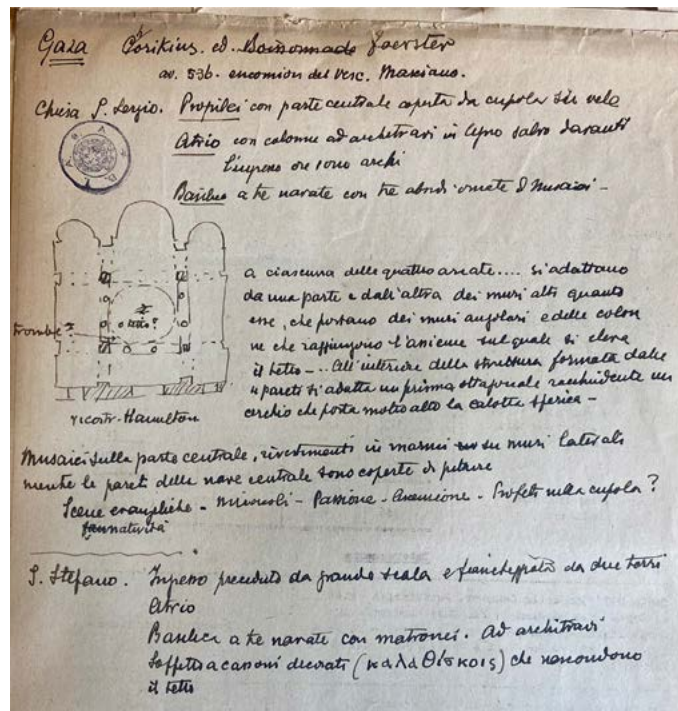 Gaza Corikius. ed. Boissonnade Foerster
av. 536. encomion del Vesc. Marciano.
Chiesa S. Sergio. Propilei con parte centrale coperta da cupola su vela
Atrio con colonne ad architravi in legno salvo davanti
l'ingresso ove sono archi
Basilica a tre navate con tre absidi ornate di musaici -
a ciascuna delle quattro arcate .... si adattano
da una parte e dall'altra dei muri alti quanto
esse, che portano dei muri angolari e delle colon
ne che raggiungono l'anicne sul quale si eleva
il tetto - ... All'interiore della struttura formata dalle
4 pareti si adatta un prisma ottagonale racchiudente un
cerchio che porta molto alto la calotta sferica -
o tetto?
trombe?
ricostr. Hamilton
Musaici sulla parte centrale, rivestimenti in marmi su muri laterali
mente le pareti delle nave centrale sono coperte di pitture
Scene evangeliche - miracoli - Passione - Ascensione - Profeti nella cupola?
natività
S. Stefano. Ingresso preceduto da grande scala e fiancheggiato da due torri
Atrio
Basilica a tre navate con matronei. Ad architravi
Soffitto a cassoni decorati (καλαθίσκοις) che nascondono
il tetto